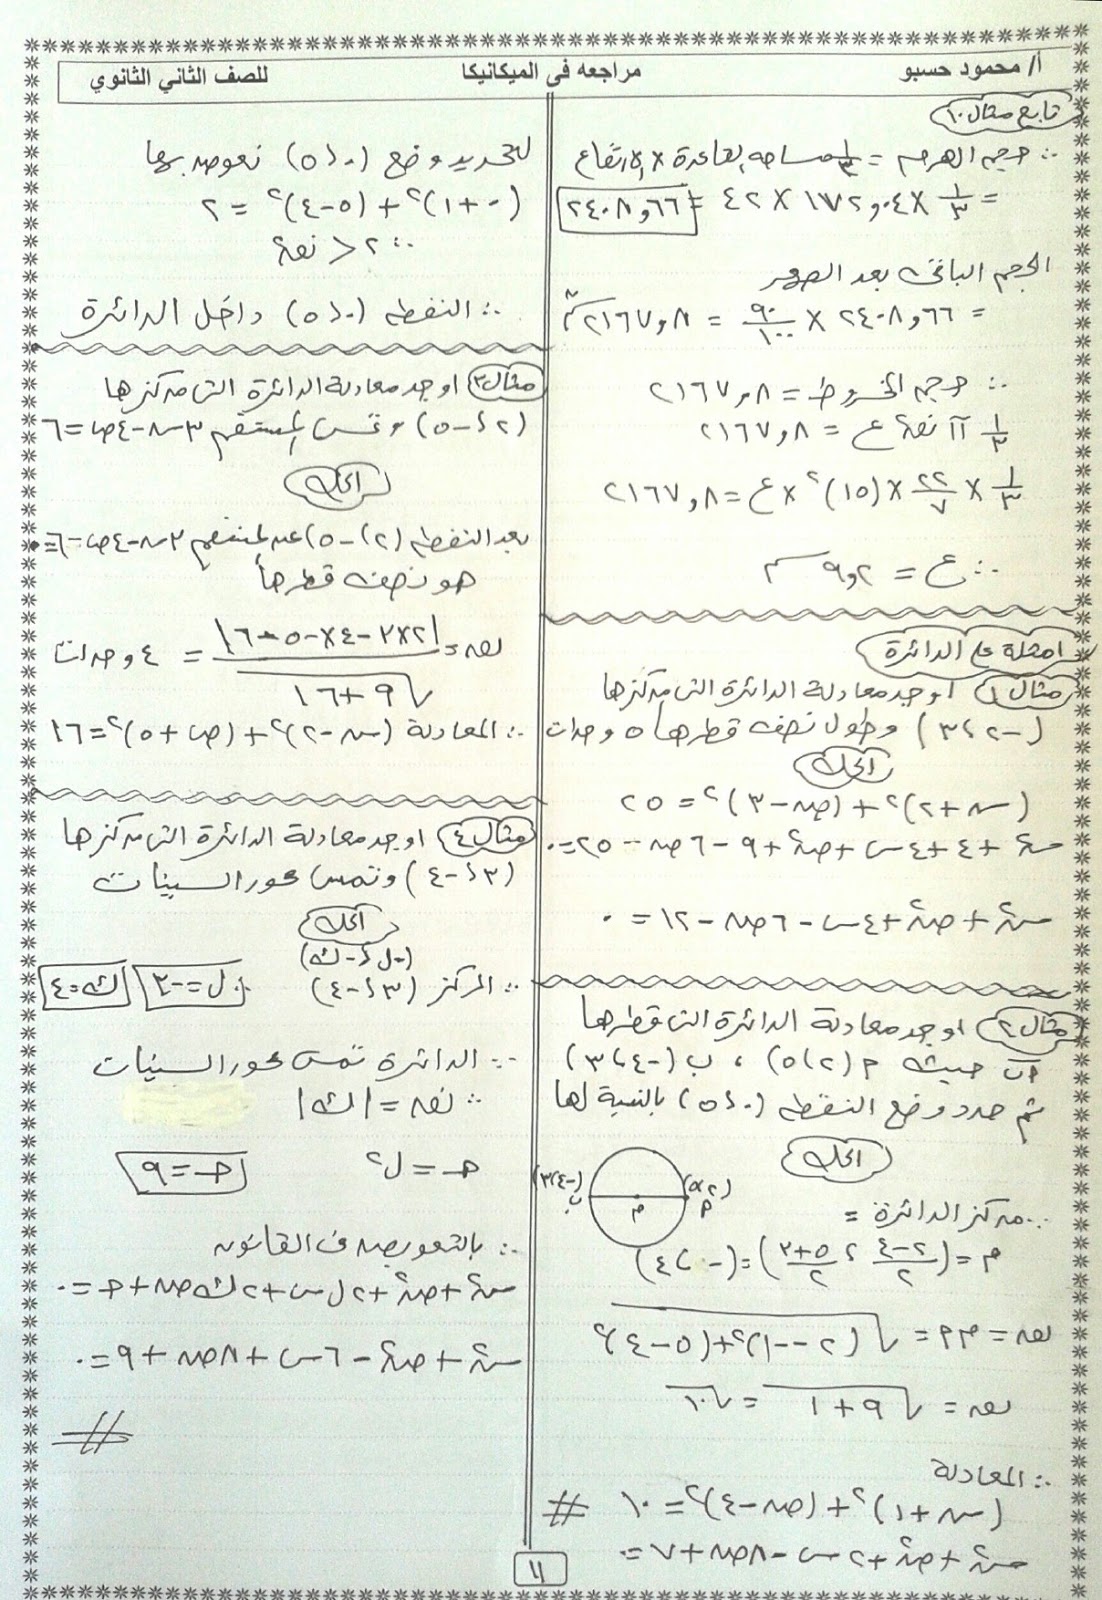 أ/ محمود حسبو
مراجعه فى الميكانيكا
للصف الثاني الثانوي
تابع مثال ١٠
∴ حجم الهرم = ١/٣ مساحه القاعدة × الارتفاع
= ١/٣ × ١٧٢,٠٤ × ٤٢ = ٢٤٠٨,٦٦
الحجم الباقى بعد الصهر
= ٢٤٠٨,٦٦ × ٩٠/١٠٠ = ٢١٦٧,٨ سم٣
∴ حجم المخروط = ٢١٦٧,٨
١/٣ π نق٢ ع = ٢١٦٧,٨
١/٣ × ٢٢/٧ × (١٥)٢ × ع = ٢١٦٧,٨
∴ ع = ٩,٢ سم
امثلة على الدائرة
مثال ١ اوجد معادلة الدائرة التى مركزها
(-٢، ٣) وطول نصف قطرها ٥ وحدات
الحل
(س+٢)٢ + (ص-٣)٢ = ٢٥
س٢ + ٤ + ٤س + ص٢ + ٩ - ٦ص - ٢٥ = ٠
س٢ + ص٢ + ٤س - ٦ص - ١٢ = ٠
مثال ٢ اوجد معادلة الدائرة التى قطرها
أب حيث م (٢، ٥) ، ب (-٤، ٣)
ثم حدد وضع النقطه (٠، ٥) بالنسبة لها
الحل
(-٤، ٣) ب م أ (٢، ٥)
∴ مركز الدائرة =
م = (٢-٤/٢ ، ٥+٣/٢) = (-١، ٤)
نق = م أ = √(٢--١)٢ + (٥-٤)٢
نق = √٩+١ = √١٠
∴ المعادلة
(س+١)٢ + (ص-٤)٢ = ١٠ #
س٢ + ص٢ + ٢س - ٨ص + ٧ = ٠
لتحديد وضع (٠، ٥) نعوض بها
(٠+١)٢ + (٥-٤)٢ = ٢
∴ ٢ < نق٢
∴ النقطه (٠، ٥) داخل الدائرة
مثال ٣ اوجد معادلة الدائرة التى مركزها
(٢، -٥) وتمس المستقيم ٣س-٤ص=٦
الحل
بعد النقطه (٢، -٥) عن المستقيم ٣س-٤ص-٦=٠
هو نصف قطرها
نق = |٢×٣-٤×-٥-٦| / √٩+١٦ = ٤ وحدات
∴ المعادلة (س-٢)٢ + (ص+٥)٢ = ١٦
مثال ٤ اوجد معادلة الدائرة التى مركزها
(٣، -٤) وتمس محور السينات
الحل
(-ل، -ك)
∴ المركز (٣، -٤) ∴ ل = -٣ ك = ٤
∵ الدائرة تمس محور السينات
∴ نق = |ك|
حـ = ل٢ حـ = ٩
∴ بالتعويض فى القانون
س٢ + ص٢ + ٢ل س + ٢ك ص + حـ = ٠
س٢ + ص٢ - ٦س + ٨ص + ٩ = ٠
#
١١